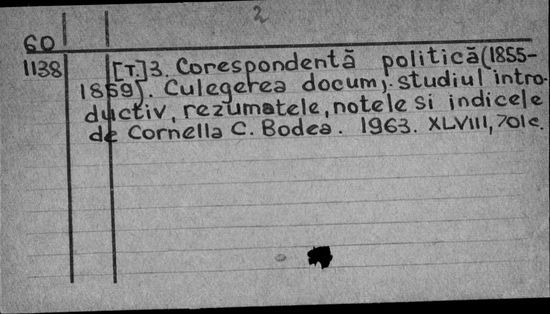 2
60
1138 [T.]3. Corespondentă politică (1855-
1859). Culegerea docum., studiul intro-
ductiv, rezumatele, notele si indicele
de Cornelia C. Bodea. 1963. XLVIII, 701 c.